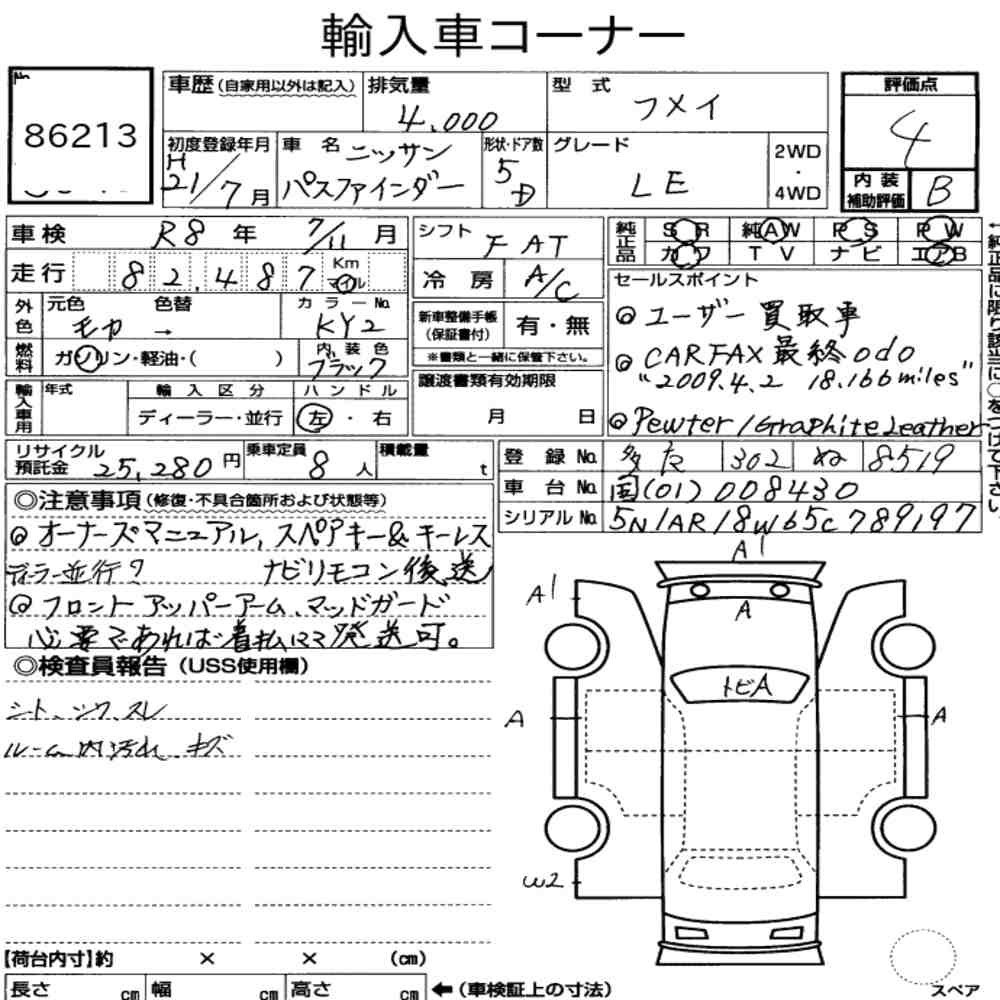 輸入車コーナー
No.
86213
車歴(自家用以外は記入)
排気量
4,000
型 式
フメイ
評価点
4
初度登録年月
H
21/7月
車 名
ニッサン
パスファインダー
形状・ドア数
5
D
グレード
LE
2WD
・
4WD
内 装
補助評価
B
車検 R8年 7/11月
走行 82,487 Km
マイル
シフト FAT
冷 房 A/C
純正品
SR 純AW PS PW
カワ TV ナビ エアB
←純正品に限り該当に○をつけて下さい。
外色
元色
色替
カラーNo.
→
KY2
新車整備手帳
(保証書付)
有・無
※書類と一緒に保管下さい。
燃料
ガソリン・軽油・( )
内 装 色
ブラック
セールスポイント
◎ユーザー買取車
◎CARFAX最終odo
"2009.4.2 18.166miles"
◎Pewter/Graphite Leather
輸入車用
年式
輸 入 区 分
ハ ン ド ル
ディーラー・並行
左・右
譲渡書類有効期限
月 日
リサイクル
預託金
25,280円
乗車定員
8人
積載量
t
登 録 No. 多た 302 ぬ 8519
車 台 No. 国(01)008430
シリアル No. 5N1AR18W65C789197
◎注意事項(修復・不具合箇所および状態等)
◎オーナーズマニュアル,スペアキー&キーレス
ディーラー並行? ナビリモコン後送
◎フロントアッパーアーム、マッドガード
必要であれば着払にて発送可。
◎検査員報告(USS使用欄)
シート、シワ、スレ
ルーム内汚れ、キズ
A1
A1
A
トビA
A
A
W2
スペア
【荷台内寸】約 × × (cm)
長さ cm 幅 cm 高さ cm ←(車検証上の寸法)